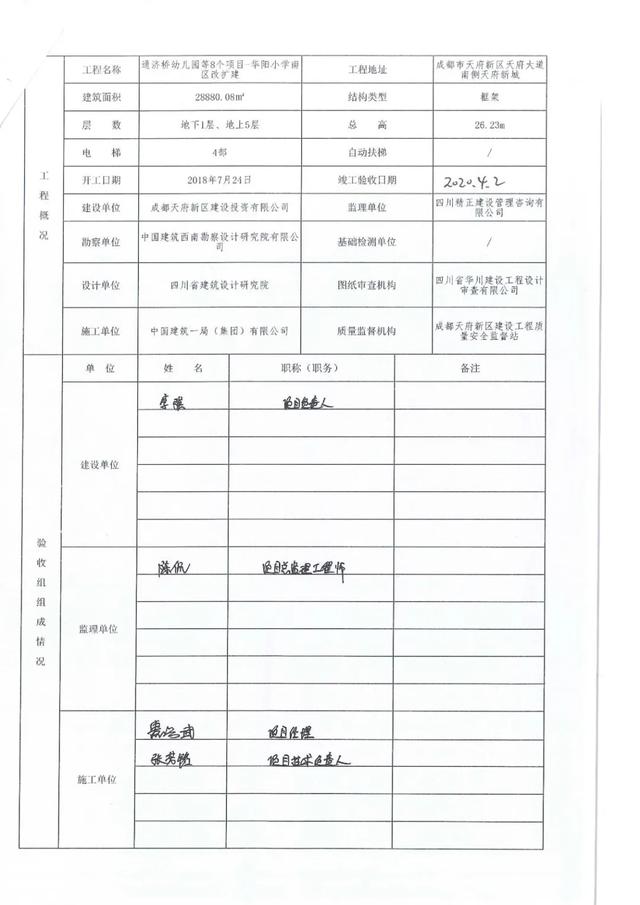 工程概况
工程名称
通济桥幼儿园等8个项目-华阳小学南
区改扩建
工程地址
成都市天府新区天府大道
南侧天府新城
建筑面积
28880.08㎡
结构类型
框架
层 数
地下1层、地上5层
总 高
26.23m
电 梯
4部
自动扶梯
/
开工日期
2018年7月24日
竣工验收日期
2020.4.2
建设单位
成都天府新区建设投资有限公司
监理单位
四川精正建设管理咨询有
限公司
勘察单位
中国建筑西南勘察设计研究院有限公
司
基础检测单位
/
设计单位
四川省建筑设计研究院
图纸审查机构
四川省华川建设工程设计
审查有限公司
施工单位
中国建筑一局（集团）有限公司
质量监督机构
成都天府新区建设工程质
量安全监督站
验收组组成情况
单 位
姓 名
职称（职务）
备注
建设单位
项目负责人
监理单位
项目总监理工程师
施工单位
项目经理
项目技术负责人